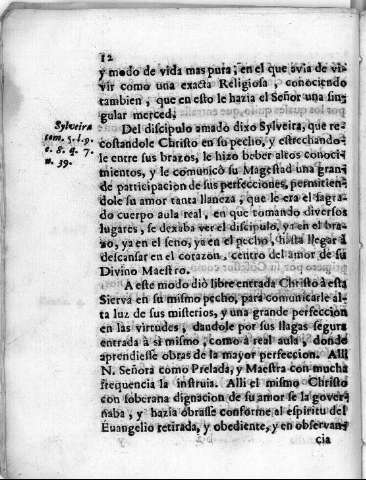 12
y modo de vida mas pura; en el que avia de vi-
vir como una exacta Religiosa, conociendo
tambien, que en esto le hazia el Señor una sin-
gular merced.
Sylveira
tom. 5. l. 9.
c. 8. q. 7.
n. 39.
Del discipulo amado dixo Sylveira, que re-
costandole Christo en su pecho, y estrechando-
le entre sus brazos, le hizo beber altos conoci-
mientos, y le comunicò su Magestad una gran-
de participacion de sus perfecciones, permitien-
dole su amor tanta llaneza, que le era el sagra-
do cuerpo aula real, en que tomando diversos
lugares, se dexaba ver el discipulo, ya en el bra-
zo, ya en el seno, ya en el pecho, hasta llegar à
descansar en el corazon, centro del amor de su
Divino Maestro.
A este modo diò libre entrada Christo à esta
Sierva en su mismo pecho, para comunicarle al-
ta luz de sus misterios, y una grande perfeccion
en las virtudes, dandole por sus llagas segura
entrada à sì mismo, como à real aula, donde
aprendiesse obras de la mayor perfeccion. Alli
N. Señora como Prelada, y Maestra con mucha
frequencia la instruia. Alli el mismo Christo
con soberana dignacion de su amor se la gover-
naba, y hazia obrasse conforme al espiritu del
Euangelio retirada, y obediente, y en observan-
cia